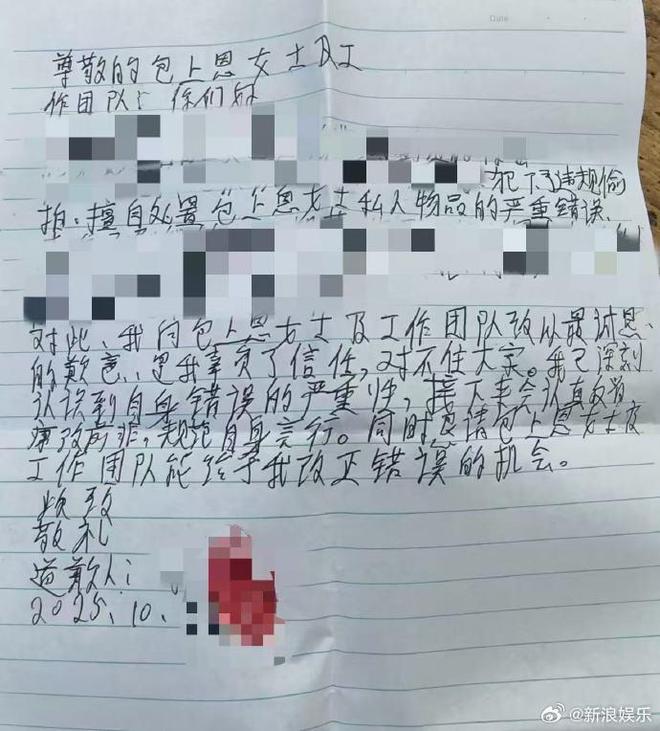 Date
尊敬的包上恩女士及工
作团队：你们好
犯下违规偷
拍、擅自处置包上恩女士私人物品的严重错误、
对此、我向包上恩女士及工作团队致以最诚恳
的歉意、是我辜负了信任，对不住大家。我已深刻
认识到自身错误的严重性，接下来会认真改省
痛改前非，规范自身言行。同时恳请包上恩女士及
工作团队能给予我改正错误的机会。
此致
敬礼
道歉人：
2025.10.
@新浪娱乐